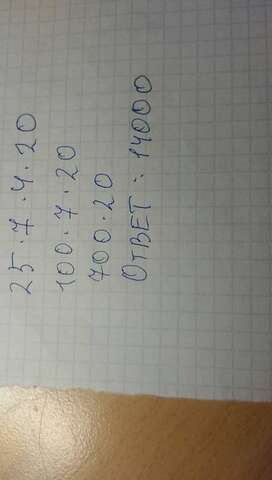 25·7·4·20
100·7·20
700·20
Ответ: 14000